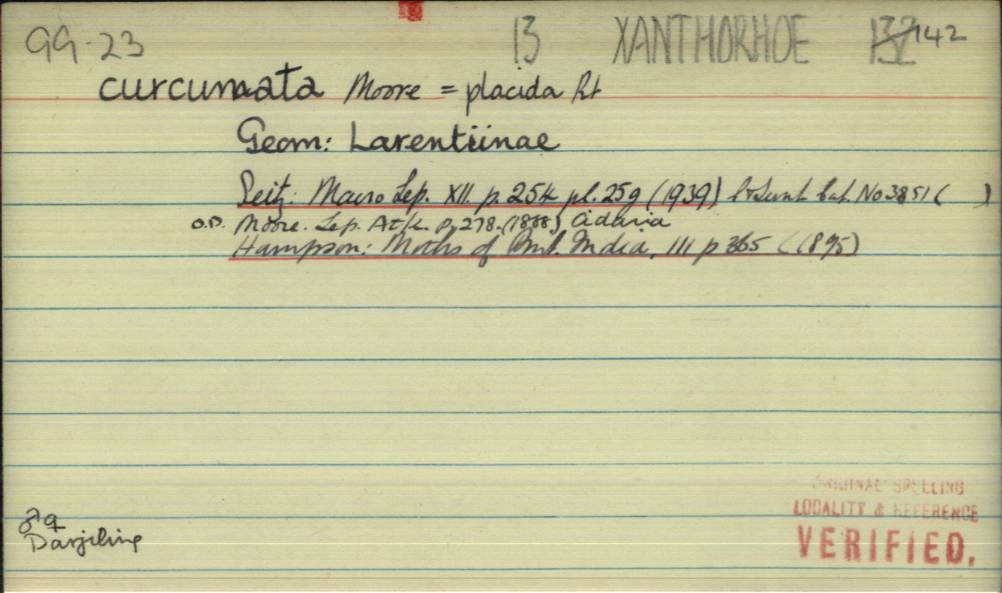 99-23 13 XANTHORHOE 132 142
curcumata Moore = placida Bt
Geom: Larentiinae
Seitz: Macro Lep. XII. p. 254 pl. 25g (1939) Cat. No 3851 ( )
O.D. Moore. Lep. Atk. p. 278. (1888) Cidaria
Hampson: Moths of Brit. India, III p 365 (1895)
♂♀
Darjiling
ORIGINAL SPELLING
LOCALITY & REFERENCE
VERIFIED.